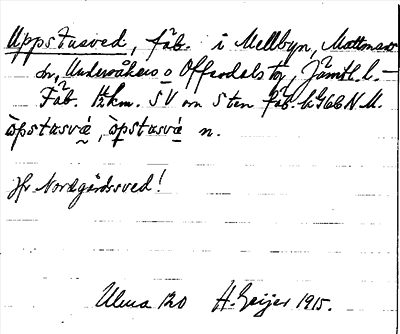 Uppstusved, fäb. i Mellbyn, Mattmars
sn, Undersåkers o Offerdals tg, Jämtl. l. —
Fäb. ½ km. SV om Sten fäb. 
òpstusvé, òpstusvé n.
Jfr Nordgårdsved!
Ulma 120 H. Geijer 1915.